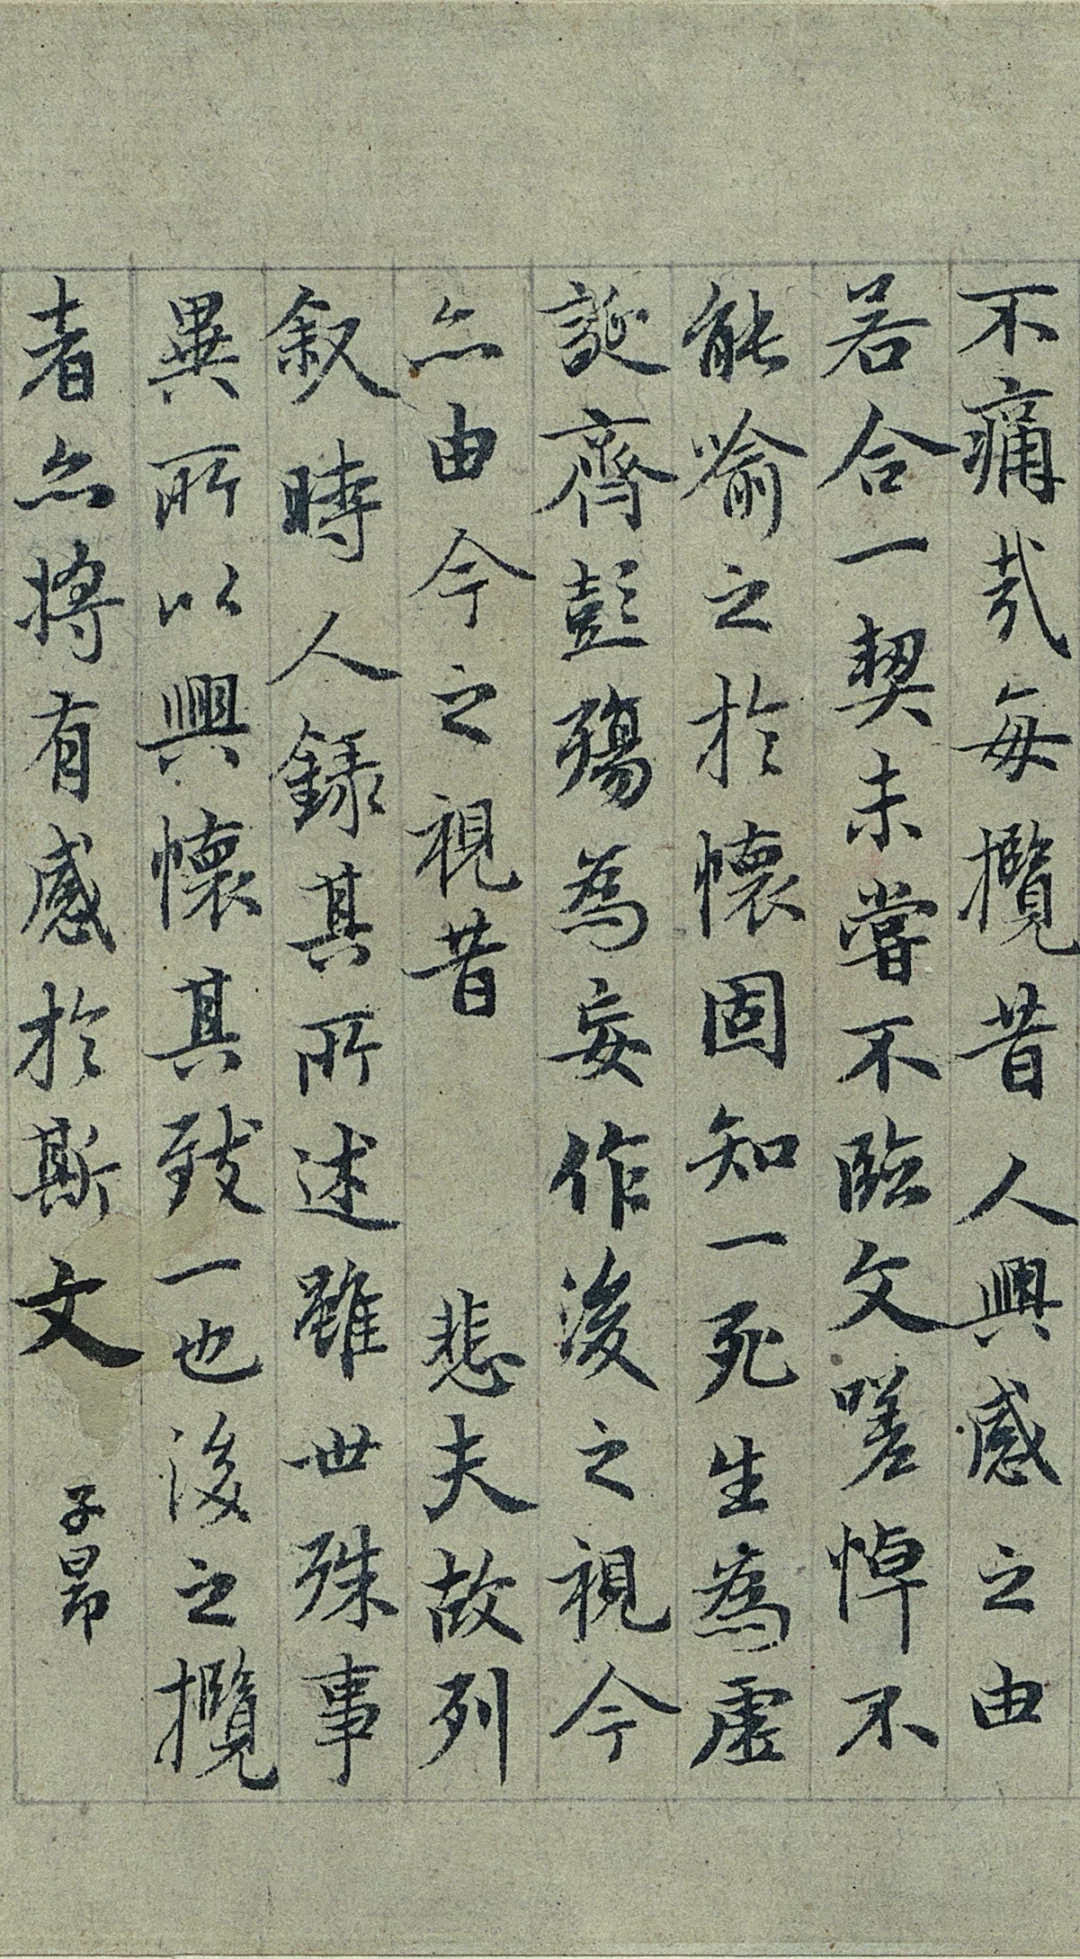 不痛哉每攬昔人興感之由
若合一契未嘗不臨文嗟悼不
能喻之於懷固知一死生為虛
誕齊彭殤為妄作後之視今
亦由今之視昔 悲夫故列
叙時人錄其所述雖世殊事
異所以興懷其致一也後之攬
者亦將有感於斯文
子昂